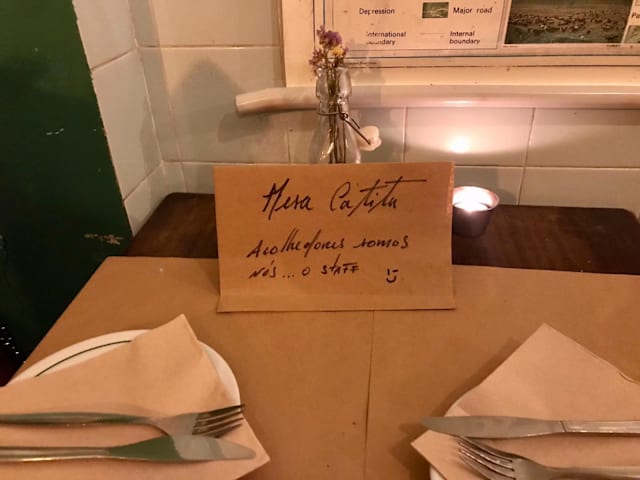 Depression Major road
International boundary Internal boundary
Mesa Catita
Acolhedores somos
nós... o STAFF :)